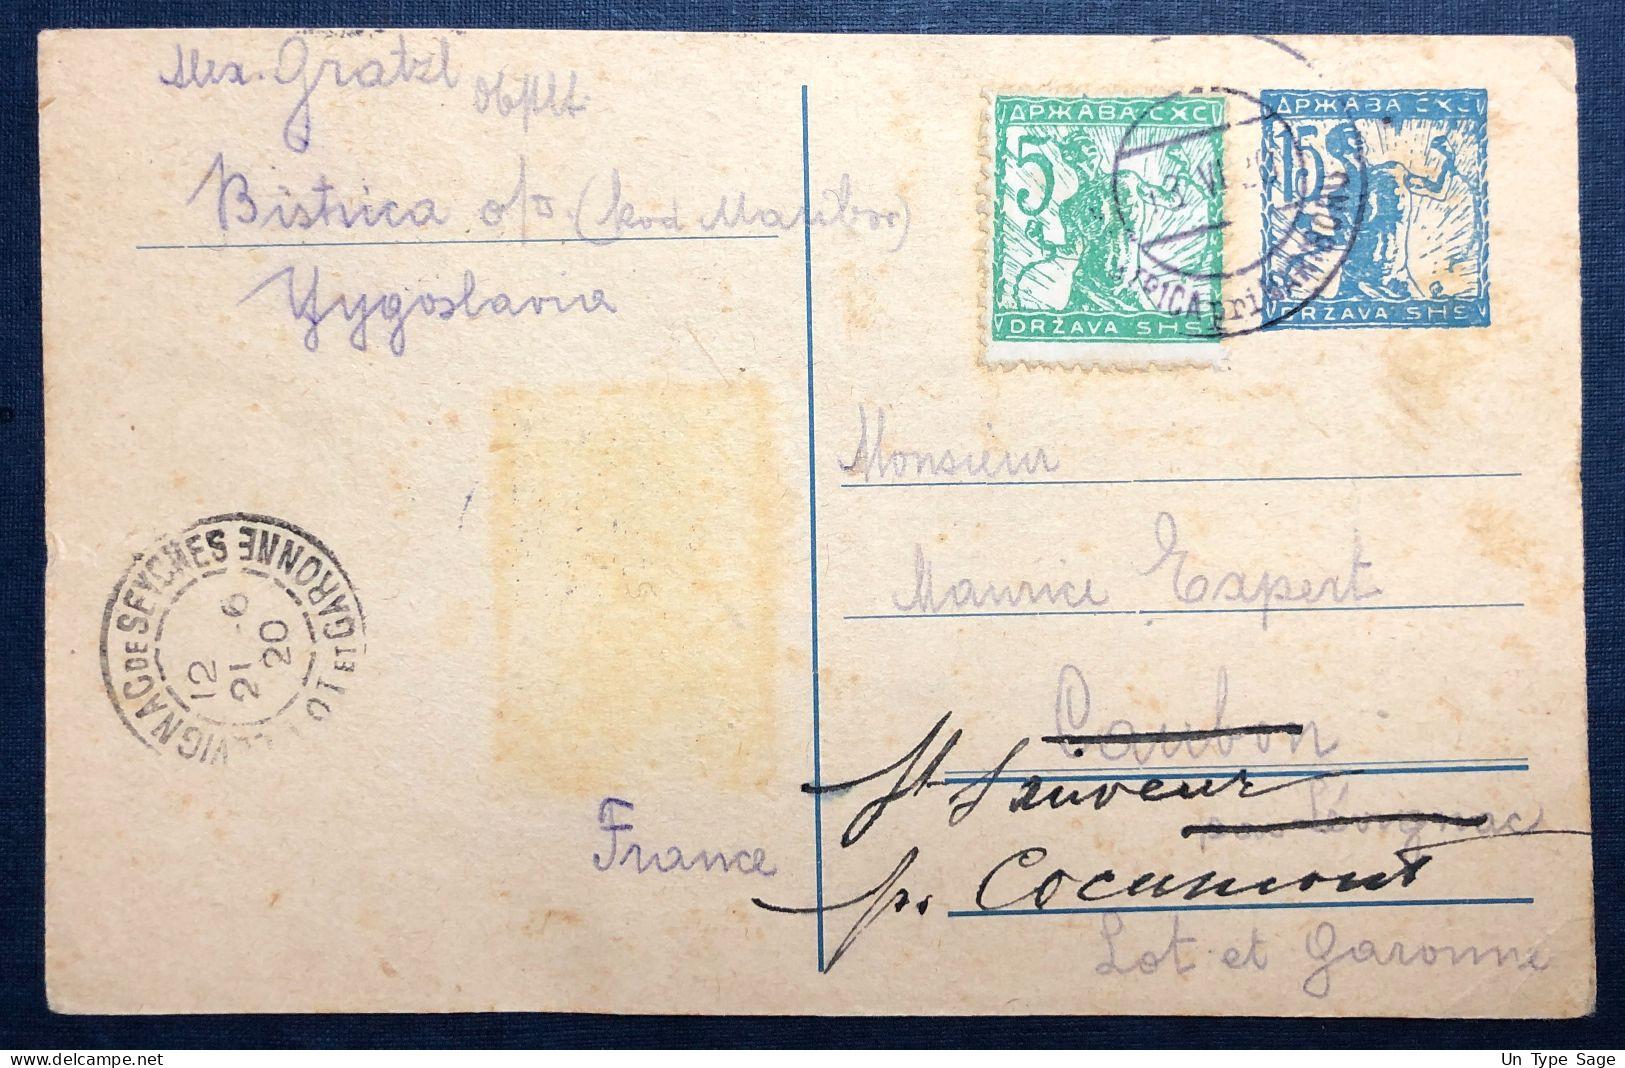 Alex. Gratzl
Bistrica o/D. (kod Maribor)
Yygoslavia
ДРЖАВА СХС
5
DRŽAVA SHS
ДРЖАВА СХС
15
DRŽAVA SHS
3 VI 20
pri MARIBORU
Monsieur
Maurice Expert
Caubon
St Sauveur
par Lévignac
pr. Cocumont
Lot et Garonne
France
LEVIGNAC DE SEYCHES LOT ET GARONNE
12
21 - 6
20
Un Type Sage